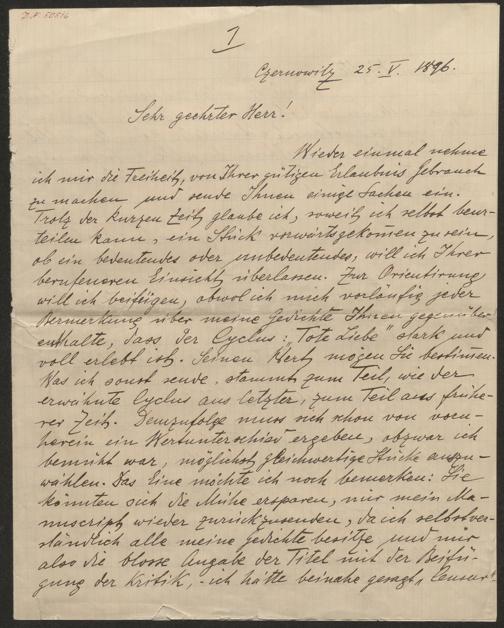 1
Czernowitz 25. V. 1896.
Sehr geehrter Herr!
Wieder einmal nehme
ich mir die Freiheit, von Ihrer gütigen Erlaubnis Gebrauch
zu machen und sende Ihnen einige Sachen ein.
Trotz der kurzen Zeit glaube ich, soweit ich selbst beur-
teilen kann, ein Stück vorwärtsgekommen zu sein,
ob ein bedeutendes oder unbedeutendes, will ich Ihrer
berufeneren Einsicht überlassen. Zur Orientirung
will ich beifügen, obwol ich mich vorläufig jeder
Bemerkung über meine Gedichte Ihnen gegenüber
enthalte, dass der Cyclus: „Tote Liebe" stark und
voll erlebt ist. Seinen Wert mögen Sie bestimmen.
Was ich sonst sende, stammt zum Teil, wie der
erwähnte Cyclus aus letzter, zum Teil aus frühe-
rer Zeit. Demzufolge muss sich schon von vorn-
herein ein Wertunterschied ergeben, obzwar ich
bemüht war, möglichst gleichwertige Stücke auszu-
wählen. Das Eine möchte ich noch bemerken: Sie
könnten sich die Mühe ersparen, mir mein Ma-
nuscript wieder zurückzusenden, da ich selbstver-
ständlich alle meine Gedichte besitze und mir
also die blosse Angabe der Titel mit der Beifü-
gung der Kritik, - ich hätte beinahe gesagt „Censur"